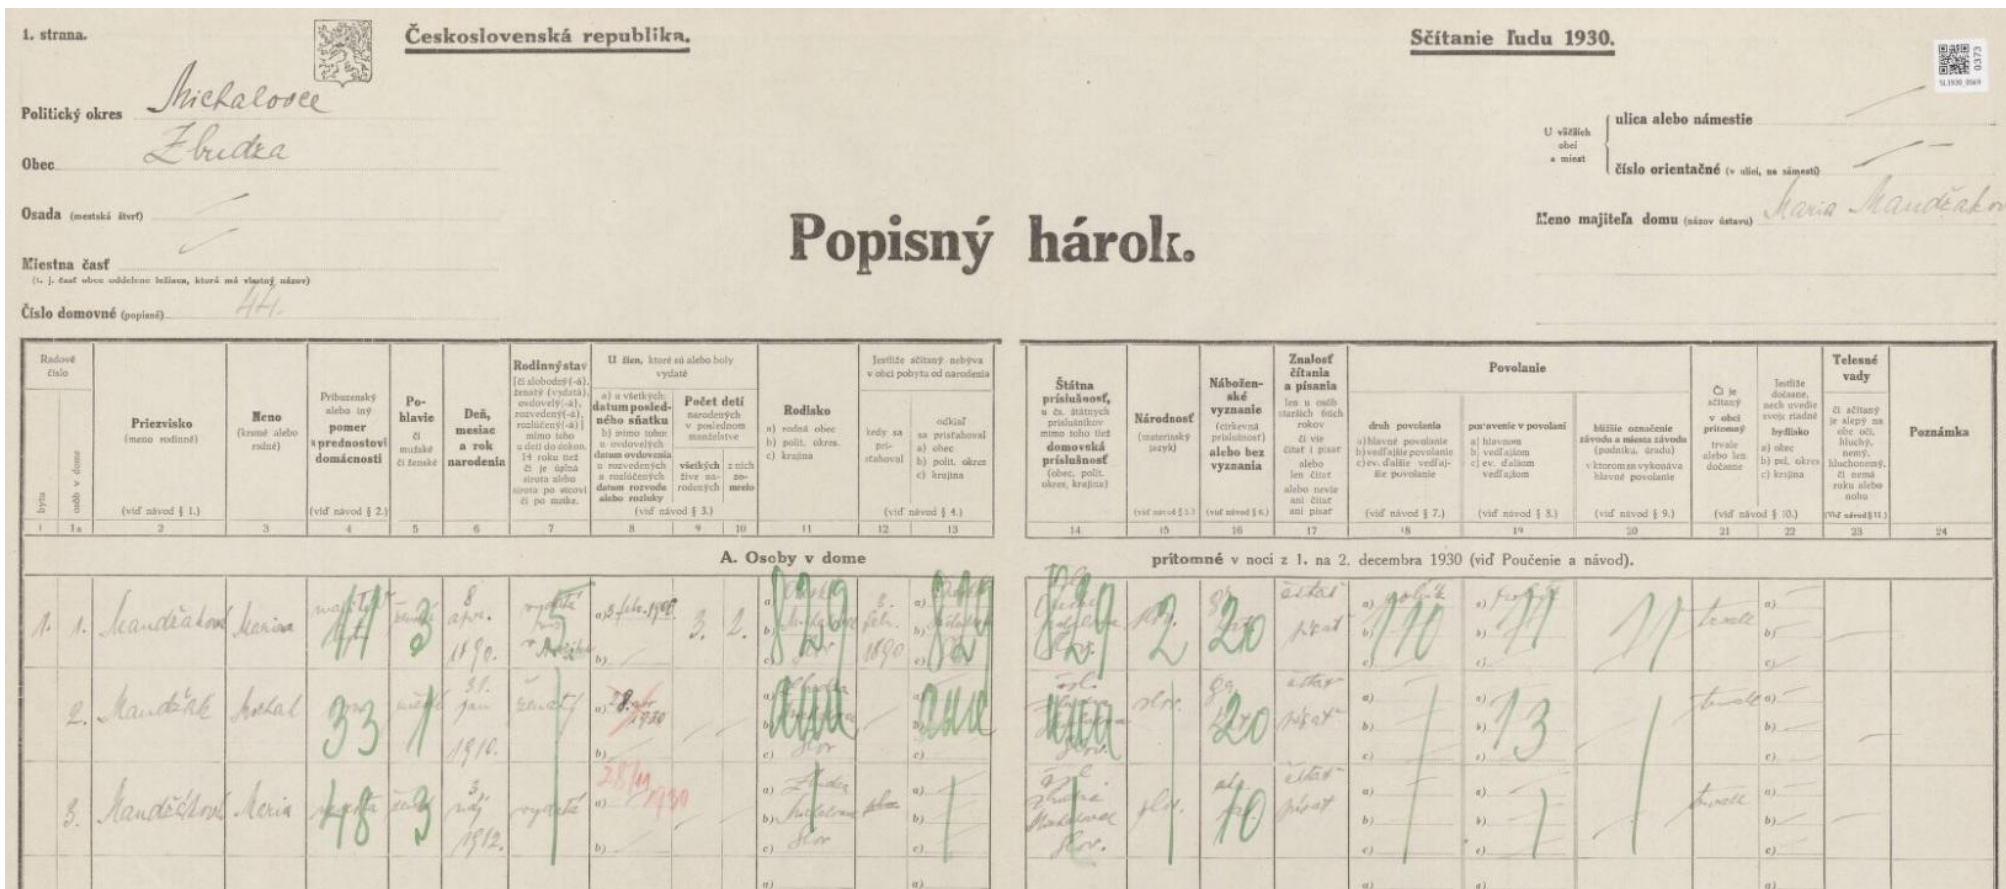 1. strana.
Československá republika.
Sčítanie ľudu 1930.
0373
SL1930_0569
Politický okres Michalovce
Obec Zbudza
Osada (mestská štvrť)
Miestna časť
(t. j. časť obce oddelene ležiaca, ktorá má vlastný názov)
Číslo domovné (popisné) 44.
U väčších obcí a miest
ulica alebo námestie
číslo orientačné (v ulici, na námestí)
Meno majiteľa domu (názov ústavu) Maria Mandžákov
Popisný hárok.
Radové číslo
bytu
osôb v dome
Priezvisko
(meno rodinné)
(viď návod § 1.)
Meno
(krstné alebo rodné)
Príbuzenský alebo iný pomer k prednostovi domácnosti
(viď návod § 2.)
Pohlavie
či mužské či ženské
Deň, mesiac a rok narodenia
Rodinný stav
[či slobodný(-á), ženatý (vydatá), ovdovelý(-á), rozvedený(-á), rozlúčený(-á)]
mimo toho u detí do dokon. 14 roku než či je úplná sirota alebo sirota po otcovi či po matke.
U žien, ktoré sú alebo boly vydaté
a) u všetkých: datum posledného sňatku
b) mimo toho: u ovdovelých datum ovdovenia u rozvedených a rozlúčených datum rozvodu alebo rozluky
Počet detí
narodených v poslednom manželstve
všetkých žive narodených
z nich zomrelo
(viď návod § 3.)
Rodisko
a) rodná obec
b) polit. okres.
c) krajina
Jestliže sčítaný nebýva v obci pobytu od narodenia
kedy sa prisťahoval
odkiaľ sa prisťahoval
a) obec
b) polit. okres
c) krajina
(viď návod § 4.)
Štátna príslušnosť,
u čs. štátnych príslušníkov mimo toho tiež
domovská príslušnosť
(obec, polit. okres, krajina)
Národnosť
(materinský jazyk)
(viď návod § 5.)
Náboženské vyznanie
(cirkevná príslušnosť)
alebo bez vyznania
(viď návod § 6.)
Znalosť čítania a písania
len u osôb starších 6tich rokov
či vie čítať i písať
alebo len čítať
alebo nevie ani čítať ani písať
Povolanie
druh povolania
a) hlavné povolanie
b) vedľajšie povolanie
c) ev. ďalšie vedľajšie povolanie
(viď návod § 7.)
postavenie v povolaní
a) hlavnom
b) vedľajšom
c) ev. ďalšom vedľajšom
(viď návod § 8.)
bližšie označenie závodu a miesta závodu (podniku, úradu)
v ktorom sa vykonáva hlavné povolanie
(viď návod § 9.)
Či je sčítaný v obci prítomný
trvale alebo len dočasne
Jestliže dočasne, nech uvedie svoje riadne bydlisko
a) obec
b) pol. okres
c) krajina
(viď návod § 10.)
Telesné vady
či sčítaný je slepý na obe oči, hluchý, nemý, hluchonemý, či nemá ruku alebo nohu
(viď návod § 11.)
Poznámka
1 1a 2 3 4 5 6 7 8 9 10 11 12 13 14 15 16 17 18 19 20 21 22 23 24
A. Osoby v dome prítomné v noci z 1. na 2. decembra 1930 (viď Poučenie a návod).
1. 1. Mandžáková 3 8 apr. 1890. vydatá 5 a) 3. feb. b) 3. 2. a) b) c) 829 3. feb. a) b) c) 829 829 2 20 čítať písať a) b) c) 110 a) b) c) 11 11 trvale a) b) c)
2. Mandžák Michal 33 1 31. jan 1910. ženatý a) 1930 b) a) b) c) Slov a) b) c) slov. 20 čítať písať a) b) c) a) b) c) 13 trvale a) b) c)
3. Mandžáková Maria 48 3 3. máj 1912. vydatá a) 28/ 1930 b) a) Zbudza b) Michalovce c) Slov a) b) c) čsl. Zbudza Michalovce Slov. slov. 10 čítať písať a) b) c) a) b) c) trvale a) b) c)
a) a) a) a) a)